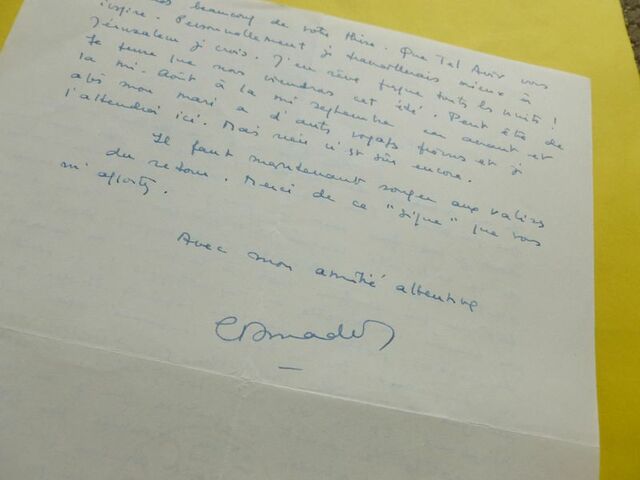 beaucoup de votre thèse. Que Tel Aviv vous
inspire. Personnellement je travaillerais mieux à
Jérusalem je crois. J'en rêve presque toutes les nuits !
Je pense que nous viendrons cet été. Peut être de
la mi. Août à la mi septembre car avant et
mon mari a d'autres voyages prévus et je
l'attendrai ici. Mais rien n'est sûr encore.
Il faut maintenant songer aux valises
du retour. Merci de ce "signe" que vous
m'apportez.
Avec mon amitié attentive